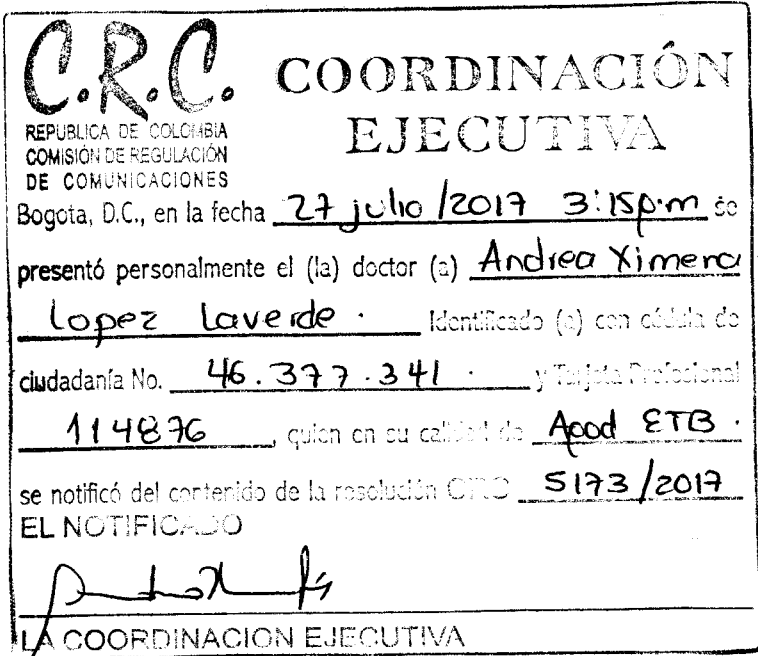 C.R.C.
REPUBLICA DE COLOMBIA
COMISIÓN DE REGULACIÓN
DE COMUNICACIONES
COORDINACIÓN
EJECUTIVA
Bogota, D.C., en la fecha 27 julio /2017 3:15p.m se
presentó personalmente el (la) doctor (a) Andrea Ximena
Lopez Laverde . Identificado (a) con cédula de
ciudadanía No. 46.377.341 . y Tarjeta Profesional
114876, quien en su calidad de Apod ETB .
se notificó del contenido de la resolución CRC 5173/2017
EL NOTIFICADO
LA COORDINACION EJECUTIVA